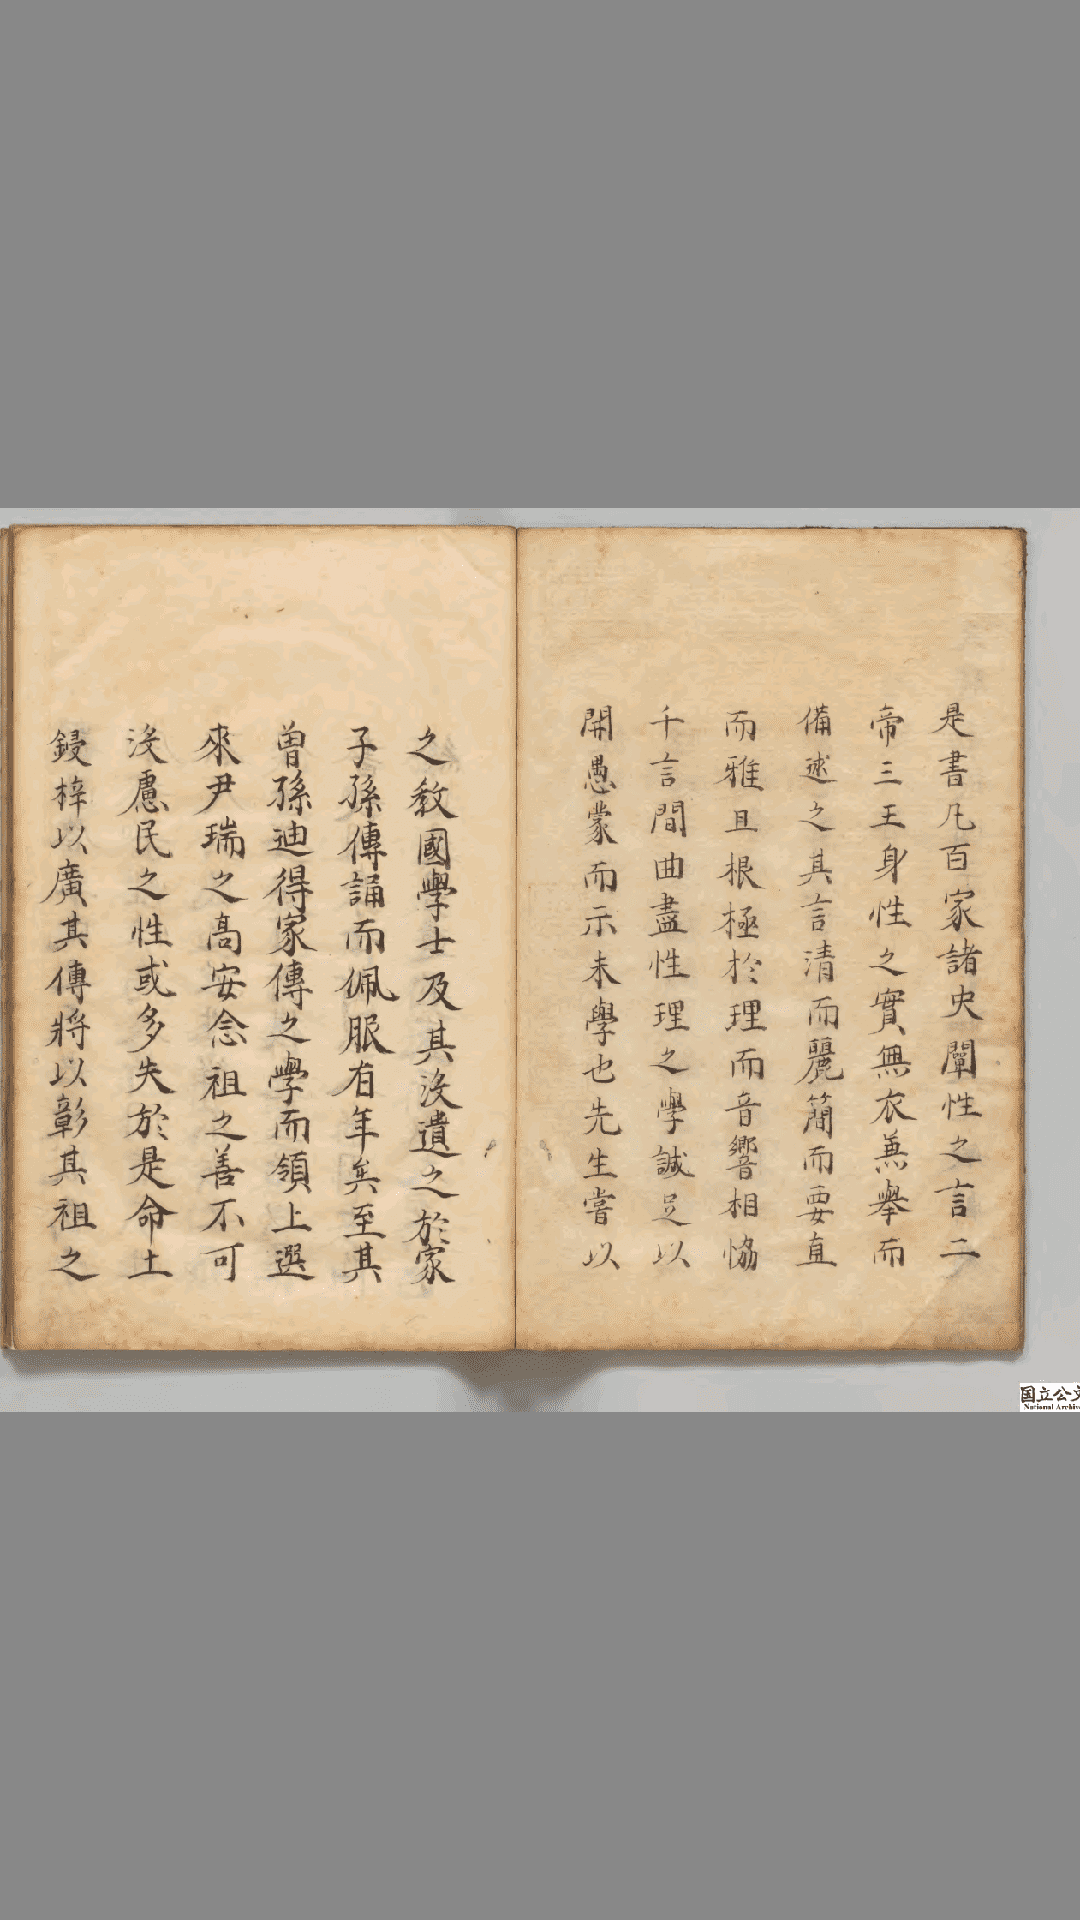 是書凡百家諸史闡性之言二
帝三王身性之實無衣無舉而
備述之其言清而麗簡而要直
而雅且根極於理而音響相恊
千言間曲盡性理之學誠足以
開愚蒙而示未學也先生嘗以
之教國學士及其沒遺之於家
子孫傳誦而佩服有年矣至其
曾孫迪得家傳之學而領上選
來尹瑞之高安念祖之善不可
沒慮民之性或多失於是命土
鋟梓以廣其傳將以彰其祖之
国立公文
National Archive